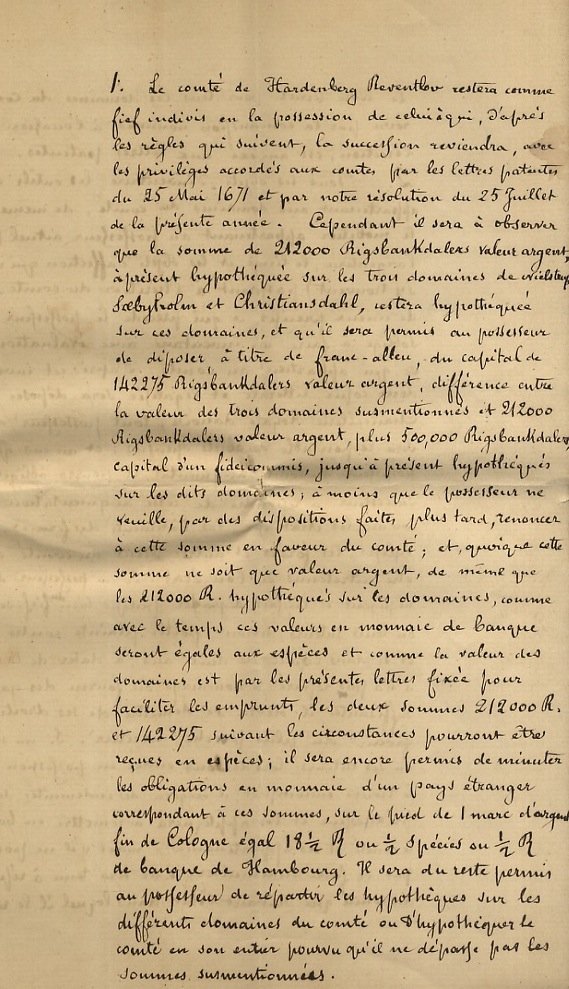 1. Le comté de Hardenberg Reventlov restera comme
fief indivis en la possession de celui à qui, d'après
les règles qui suivent, la succession reviendra, avec
les privilèges accordés aux comtes par les lettres patentes
du 25 Mai 1671 et par notre résolution du 25 Juillet
de la présente année. Cependant il sera à observer
que la somme de 212000 Rigsbankdalers valeur argent,
à présent hypothéquée sur les trois domaines de
Sæbyholm et Christiansdahl, restera hypothéquée
sur ces domaines, et qu'il sera permis au possesseur
de disposer à titre de franc-alleu, du capital de
142275 Rigsbankdalers valeur argent, différence entre
la valeur des trois domaines susmentionnés et 212000
Rigsbankdalers valeur argent, plus 500,000 Rigsbankdalers,
capital d'un fideicommis, jusqu'à présent hypothéqués
sur les dits domaines; à moins que le possesseur ne
veuille, par des dispositions faites plus tard, renoncer
à cette somme en faveur du comté; et, quoique cette
somme ne soit que valeur argent, de même que
les 212000 R. hypothéqués sur les domaines, comme
avec le temps ces valeurs en monnaie de banque
seront égales aux espèces et comme la valeur des
domaines est par les présentes lettres fixée pour
faciliter les emprunts, les deux sommes 212000 R.
et 142275 suivant les circonstances pourront être
reçues en espèces; il sera encore permis de minuter
les obligations en monnaie d'un pays étranger
correspondant à ces sommes, sur le pied de 1 marc d'argent
fin de Cologne égal 18 ½ R ou ½ Spécies ou ½ R
de banque de Hambourg. Il sera du reste permis
au possesseur de répartir les hypothèques sur les
différents domaines du comté ou d'hypothéquer le
comté en son entier pourvu qu'il ne dépasse pas les
sommes susmentionnées.